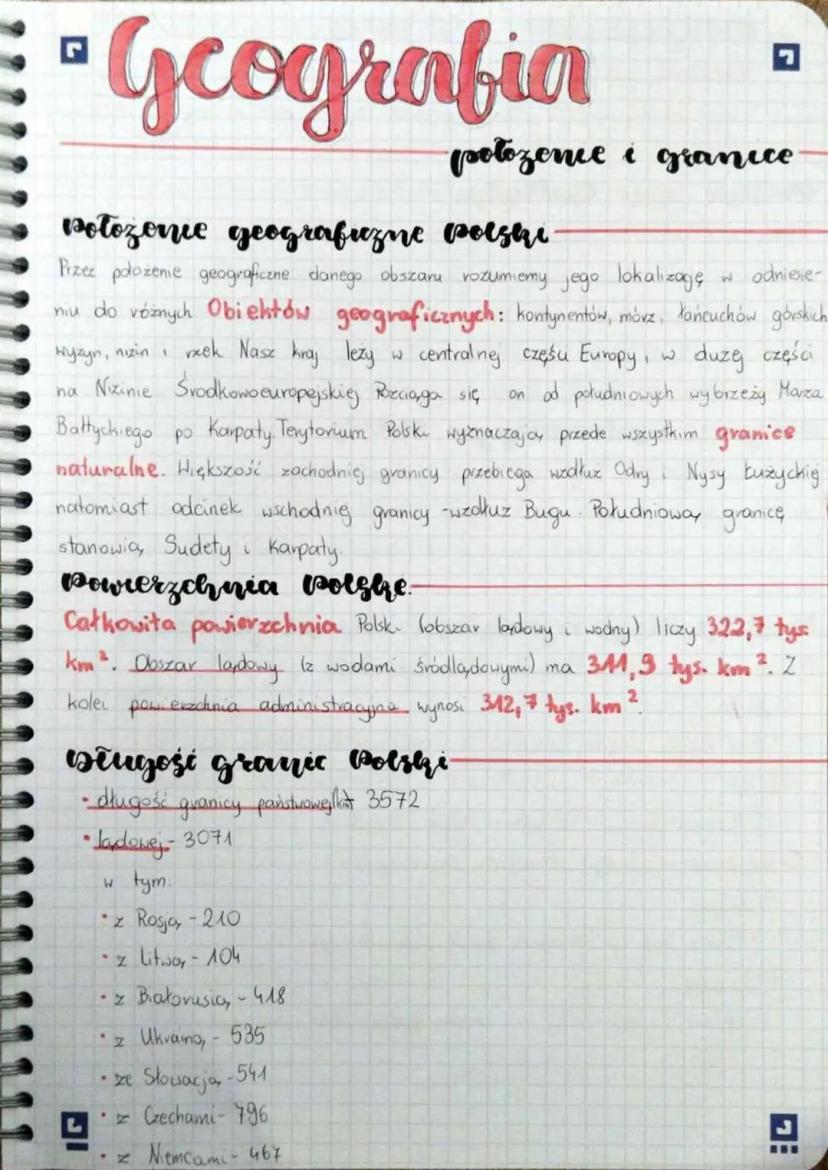 Geografia
położenie i granice
Położenie geograficzne Polski
Przez położenie geograficzne danego obszaru rozumiemy jego lokalizację w odniesie-
niu do różnych Obiektów geograficznych: kontynentów, mórz, łańcuchów górskich
wyżyn, nizin i rzek. Nasz kraj leży w centralnej części Europy, w dużej części
na Nizinie Środkowoeuropejskiej Rozciąga się on od południowych wybrzeży Morza
Bałtyckiego po Karpaty. Terytorium Polski wyznaczają przede wszystkim granice
naturalne. Większość zachodniej granicy przebiega wzdłuż Odry i Nysy Łużyckiej
natomiast odcinek wschodniej granicy - wzdłuż Bugu. Południową granicę
stanowią Sudety i Karpaty.
Powierzchnia Polski.
Całkowita powierzchnia Polski (obszar lądowy i wodny) liczy 322,7 tys.
km². Obszar lądowy (z wodami śródlądowymi) ma 311,9 tys. km². Z
kolei powierzchnia administracyjna wynosi 312,7 tys. km².
Długość granic Polski
• długość granicy państwowej (km) 3572
• lądowej - 3071
w tym:
• z Rosją - 210
• z Litwą - 104
• z Białorusią - 418
• z Ukrainą - 535
• ze Słowacją - 541
• z Czechami - 796
• z Niemcami - 467